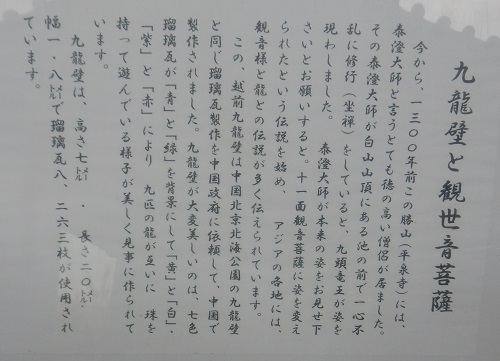 九龍壁と観世音菩薩
今から、一三〇〇年前この勝山（平泉寺）には、
泰澄大師と言うとても徳の高い僧侶が居ました。
その泰澄大師が白山山頂にある池の前で一心不
乱に修行（坐禅）をしていると、九頭竜王が姿を
現わしました。 泰澄大師が本来の姿をお見せ下
さいとお願いすると。十一面観音菩薩に姿を変え
られたという伝説を始め、 アジアの各地には、
観音様と龍との伝説が多く伝えられています。
この、越前九龍壁は中国北京北海公園の九龍壁
と同じ瑠璃瓦製作を中国政府に依頼して、中国で
製作されました。九龍壁が大変美しいのは、七色
瑠璃瓦が「青」と「緑」を背景にして「黄」と「白」・
「紫」と「赤」により 九匹の龍が互いに 珠を
持って遊んでいる様子が美しく見事に作られて
います。
九龍壁は、高さ七メートル 長さ二〇メートル・
幅一・八メートルで瑠璃瓦八、二六三枚が使用され
ています。